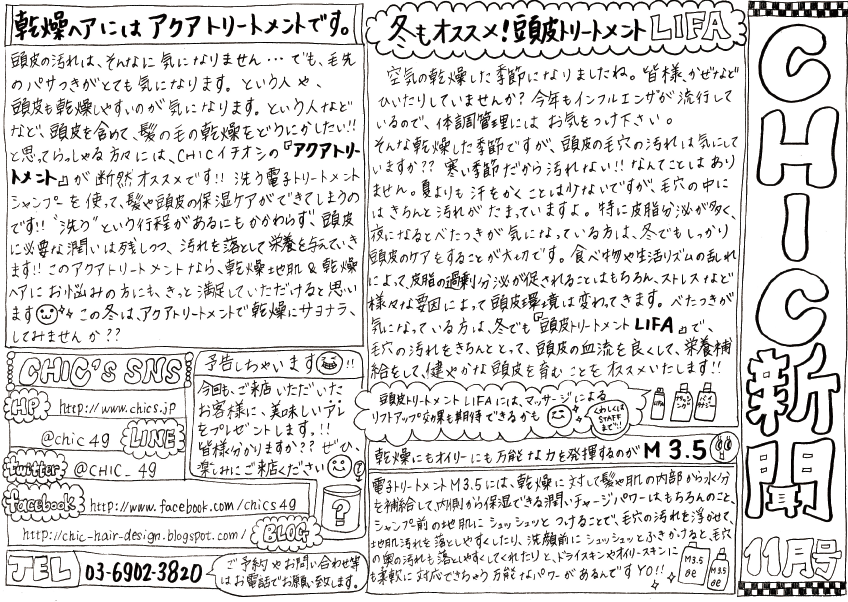 CHIC新聞
11月号
冬もオススメ!頭皮トリートメントLIFA
空気の乾燥した季節になりましたね。皆様、かぜなど
ひいたりしていませんか?今年もインフルエンザが流行して
いるので、体調管理にはお気をつけ下さい。
そんな乾燥した季節ですが、頭皮の毛穴の汚れは気にして
いますか??寒い季節だから汚れない!!なんてことはあり
ません。夏よりも汗をかくことは少ないですが、毛穴の中に
はきちんと汚れがたまっていますよ。特に皮脂分泌が多く、
夜になるとべたつきが気になっている方は、冬でもしっかり
頭皮のケアをすることが大切です。食べ物や生活リズムの乱れ
によって、皮脂の過剰分泌が促されることはもちろん、ストレスなど
様々な要因によって頭皮環境は変わってきます。べたつきが
気になっている方は、冬でも『頭皮トリートメントLIFA』で、
毛穴の汚れをきちんととって、頭皮の血流を良くして、栄養補
給をして、健やかな頭皮を育むことをオススメいたします!!
頭皮トリートメントLIFAには、マッサージによる
リフトアップ効果も期待できるかも
くわしくは
STAFF
まで!!
乾燥にもオイリーにも万能な力を発揮するのがM3.5
電子トリートメントM3.5には、乾燥に対して髪や肌の内部から水分
を補給して、内側から保湿できる潤いチャージパワーはもちろんのこと、
シャンプー前の地肌にシュッシュッとつけることで、毛穴の汚れを浮かせて、
地肌汚れを落としやすくしたり、洗顔前にシュッシュッとふきかけると、毛穴
の奥の汚れも落としやすくしてくれたりと、ドライスキンやオイリースキンに
も柔軟に対応できちゃう万能なパワーがあるんですYO!!
M3.5
M3.5
乾燥ヘアにはアクアトリートメントです。
頭皮の汚れは、そんなに気になりません…でも、毛先
のパサつきがとても気になります。という人や、
頭皮も乾燥しやすいのが気になります。という人など
など、頭皮を含めて、髪の毛の乾燥をどうにかしたい!!
と思ってらっしゃる方々には、CHICイチオシの『アクアトリー
トメント』が断然オススメです!!洗う電子トリートメント
シャンプーを使って、髪や頭皮の保湿ケアができてしまうの
です!!“洗う”という行程があるにもかかわらず、頭皮
に必要な潤いは残しつつ、汚れを落として栄養を与えていき
ます!!このアクアトリートメントなら、乾燥地肌&乾燥
ヘアにお悩みの方にも、きっと満足していただけると思い
ます この冬は、アクアトリートメントで乾燥にサヨナラ、
してみませんか??
CHIC'S SNS
HP http://www.chics.jp
@chic49 LINE
twitter @CHIC_49
facebook http://www.facebook.com/chics49
http://chic-hair-design.blogspot.com/ BLOG
予告しちゃいます!!
今回も、ご来店いただいた
お客様に、美味しいアレ
をプレゼントします。!!
皆様分かりますか??ぜひ、
楽しみにご来店ください
?
TEL 03-6902-3820
ご予約やお問い合わせ等
はお電話でお願い致します。